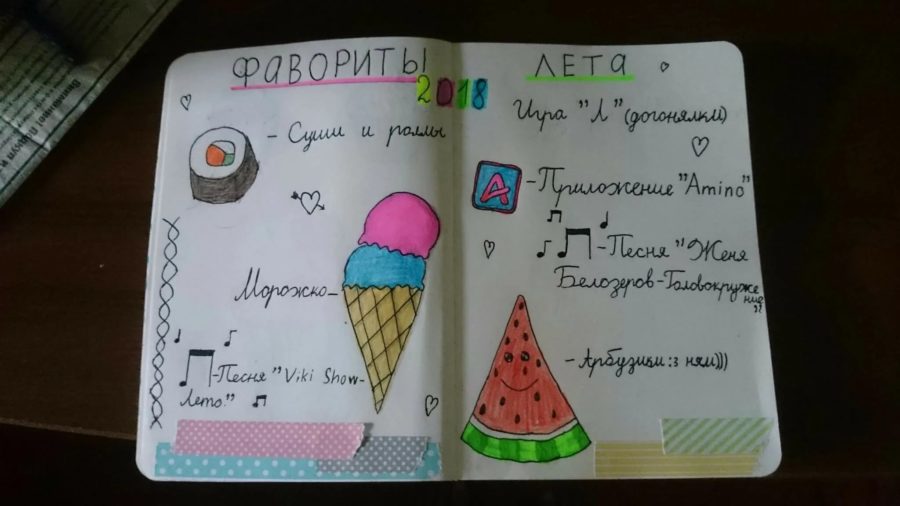 ФАВОРИТЫ
2018
- Суши и роллы
Морожко-
-Песня "Viki Show-
Лето."
ЛЕТА
Игра "Л" (догонялки)
A
-Приложение "Amino"
-Песня "Женя
Белозеров-Головокруже
ние"
-Арбузики:з ням)))